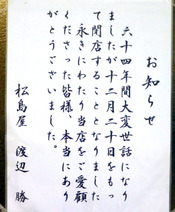 お知らせ
六十四年間大変世話になり
ましたが十二月二十日をもっ
て閉店することとなりました
永きにわたり当店をご愛顧
くださった皆様、本当にあり
がとうございました。
松島屋 渡辺 勝